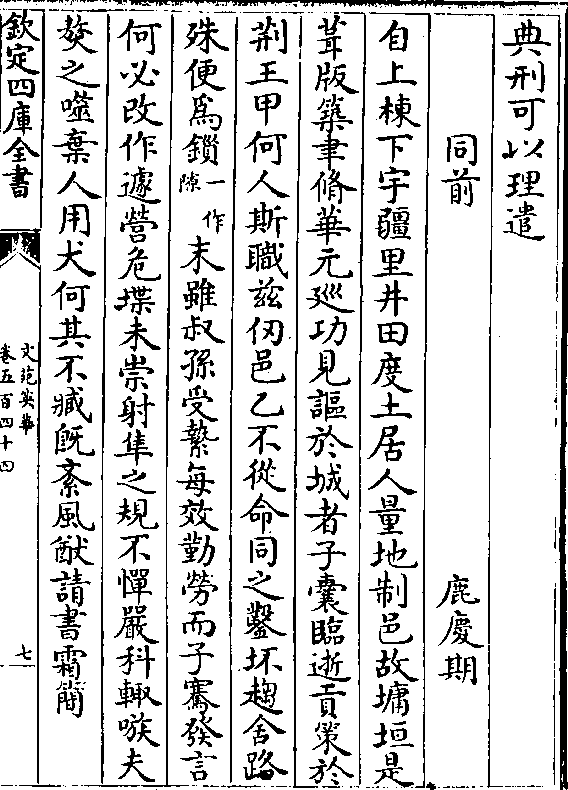 典刑可以理遣
同前　鹿慶期
自上棟下宇疆里井田度土居人量地制邑故墉垣是
葺版築聿脩華元廵功見謳於城者子囊臨逝貢策於
荆王甲何人斯職兹仞邑乙不從命同之鑿坏趨舍路
殊便爲鎖一作隙末雖叔孫受縶每效勤勞而子騫發言
何必改作遽營危堞未崇射隼之規不憚嚴科輙嗾夫
獒之噬棄人用犬何其不臧旣紊風猷請書霜簡
欽定四庫全書
文苑英華
卷五百四十四
七